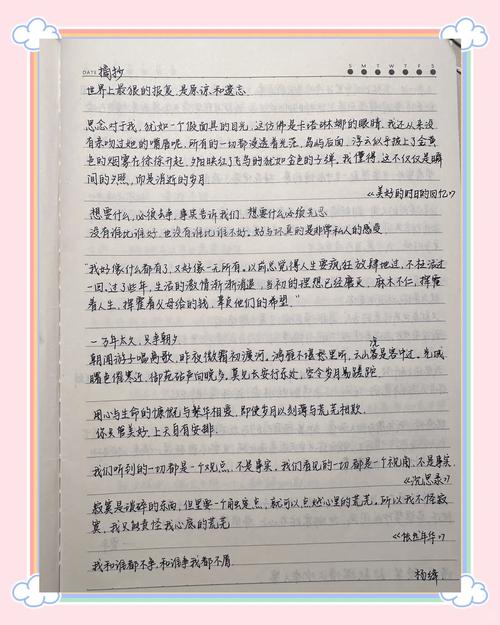 DATE 摘抄
S M T W T F S
世界上最狠的报复,是原谅和遗忘
思念对于我,犹如一个假面具的目光,这仿佛是卡塔琳娜的眼睛,我还从来没
有亲吻过她的嘴唇呢,所有的一切都浸透着光茫,岛屿后面,浮云似乎披上了金黄
色的烟雾在徐徐升起,夕阳映红了飞鸟的犹如金色的字样,我懂得,这不仅仅是瞬
间的夕照,而是消逝的岁月
《美好的时日的回忆》
想要什么,必须去争,事实告诉我们,想要什么必须先忍
没有谁比谁好,也没有谁比谁不好,好与坏真的是非常私人的感受
"我好像什么都有了,又好像一无所有。以前总觉得人生要疯狂放肆地过,不枉活过
一回,过了些年,生活的激情渐渐消退,当初的理想已经磨灭,麻木不仁,挥霍
着人生,挥霍着父母给的钱,辜负他们的希望"
一万年太久,只争朝夕
朝闻游子唱离歌,昨夜微霜初渡河。鸿雁不堪愁里听,云山况是客中过。关城
曙色催寒近,御苑砧声向晚多。莫见长安行乐处,空令岁月易蹉跎
用心与生命的慷慨与繁华相爱,即使岁月以刻薄与荒芜相欺
你只管美好,上天自有安排
我们听到的一切都是一个观点,不是事实。我们看见的一切都是一个视角,不是事实
《沉思录》
寂寞是破碎的东西,但里要一个固定点,就可以点燃心里的荒芜。所以我不怪寂
寞,我只能责怪我心底的荒芜
《依然年华》
我和谁都不争,和谁争我都不屑
杨绛